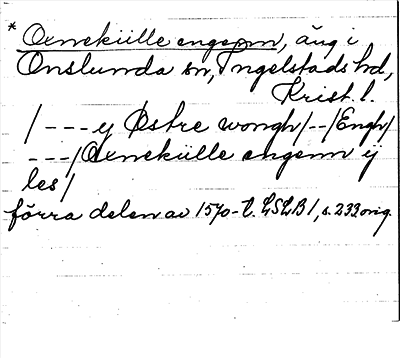 * Oxnekülle engenn, äng i
Onslunda sn, Ingelstads hd,
Krist. l.
/---y Østre wongh/--/Engh/
---/Oxnekülle engenn ij
les/
förra delen av 1570-t. LSLB 1, s. 233 orig.